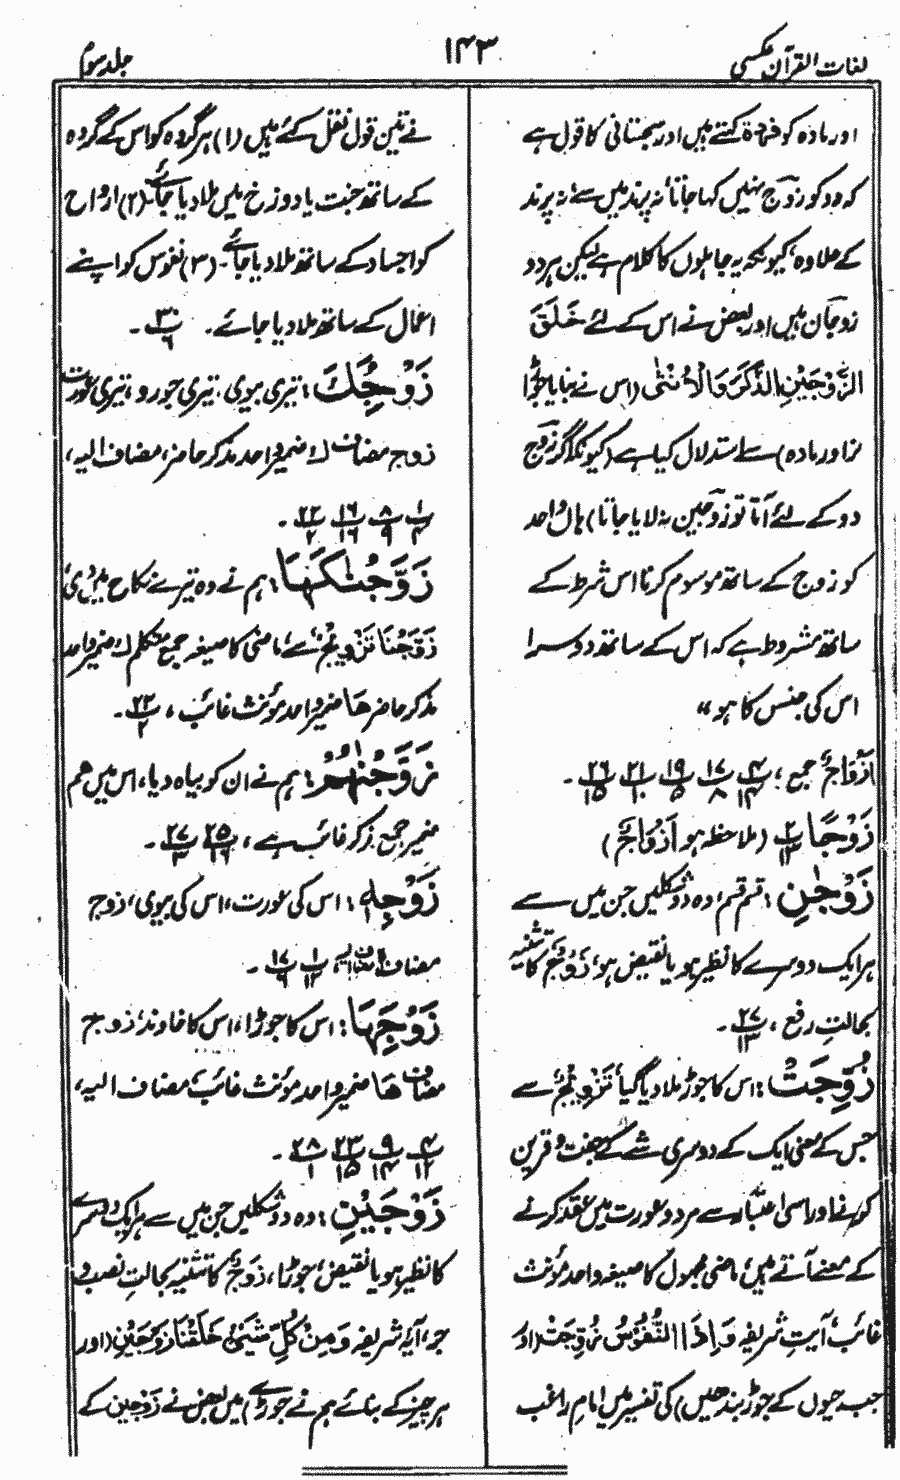 لغات القرآن عکسی
۱۴۳
جلد سوم
اور مادہ کو فردة کہتے ہیں اور سجستانی کا قول ہے
کہ وہ کو زوج نہیں کہا جاتا نہ پرند میں سے نہ پرند
کے علاوہ، کیونکہ یہ جاہلوں کا کلام ہے لیکن ہر دو
زوجان ہیں اور بعض نے اس کے لئے خَلَقَ
الزَّوْجَيْنِ الذَّكَرَ وَالْاُنْثٰى (اس نے بنایا جوڑا
نر اور مادہ) سے استدلال کیا ہے (کیونکہ اگر زوج
دو کے لئے آتا تو زوجین نہ لایا جاتا) ہاں واحد
کو زوج کے ساتھ موسوم کرنا اس شرط کے
ساتھ مشروط ہے کہ اس کے ساتھ دوسرا
اس کی جنس کا ہو "
اَزْوَاجٌ جمع، ۴/۱۴ ۱۷/۸ ۱۹/۵ ۲۱/۱۰ ۲۶/۱۵ ۔
زَوْجًا ۲/۱۳ (ملاحظہ ہو اَزْوَاجٌ)
زَوْجٰنِ : قسم قسم، وہ دو شکلیں جن میں سے
ہر ایک دوسرے کا نظیر ہو یا نقیض ہو، زَوْجٌ کا تثنیہ
بحالت رفع ، ۲۷/۱۳ ۔
زُوِّجَتْ : اس کا جوڑ ملا دیا گیا تَزْوِيْجٌ سے
جس کے معنی ایک کے دوسری شے کے جفت و قرین
کرنے اور اسی اعتبار سے مرد و عورت میں عقد کرنے
کے معنے آتے ہیں، ماضی مجہول کا صیغہ واحد مؤنث
غائب، آیت شریفہ وَاِذَا النُّفُوْسُ زُوِّجَتْ (اور
جب جیوں کے جوڑ بندھیں) کی تفسیر میں امام راغب
نے تین قول نقل کئے ہیں (۱) ہر گروہ کو اس کے گروہ
کے ساتھ جنت یا دوزخ میں ملا دیا جائے (۲) ارواح
کو اجساد کے ساتھ ملا دیا جائے ۔ (۳) نفوس کو اپنے
اعمال کے ساتھ ملا دیا جائے ۔ ۳۰/۶ ۔
زَوْجُكَ : تیری بیوی، تیری جورو، تیری عورت
زوج مضاف ك ضمیر واحد مذکر حاضر، مضاف الیہ،
۱/۴ ۸/۹ ۱۶/۱۶ ۲۲/۲ ۔
زَوَّجْنٰكَهَا : ہم نے وہ تیرے نکاح میں دی
زَوَّجْنَا تَزْوِيْجٌ سے، ماضی کا صیغہ جمع متکلم ك ضمیر واحد
مذکر حاضر هَا ضمیر واحد مؤنث غائب، ۲۲/۲ ۔
زَوَّجْنٰهُمْ : ہم نے ان کو بیاہ دیا، اس میں هم
ضمیر جمع مذکر غائب ہے، ۲۵/۱۶ ۲۷/۳ ۔
زَوْجِهٖ : اس کی عورت، اس کی بیوی، زوج
مضاف ہ مضاف الیہ، ۱/۱۲ ۱۷/۹ ۔
زَوْجَهَا : اس کا جوڑا، اس کا خاوند، زوج
مضاف هَا ضمیر واحد مؤنث غائب، مضاف الیہ،
۴/۱۲ ۹/۱۴ ۲۳/۱۵ ۲۸/۱ ۔
زَوْجَيْنِ : وہ دو شکلیں جن میں سے ہر ایک دوسرے
کا نظیر ہو یا نقیض، جوڑا، زَوْجٌ کا تثنیہ بحالت نصب و
جر، آیہ شریفہ وَمِنْ كُلِّ شَيْءٍ خَلَقْنَا زَوْجَيْنِ (اور
ہر چیز کے بنائے ہم نے جوڑے) میں بعض نے زَوْجَيْنِ کے